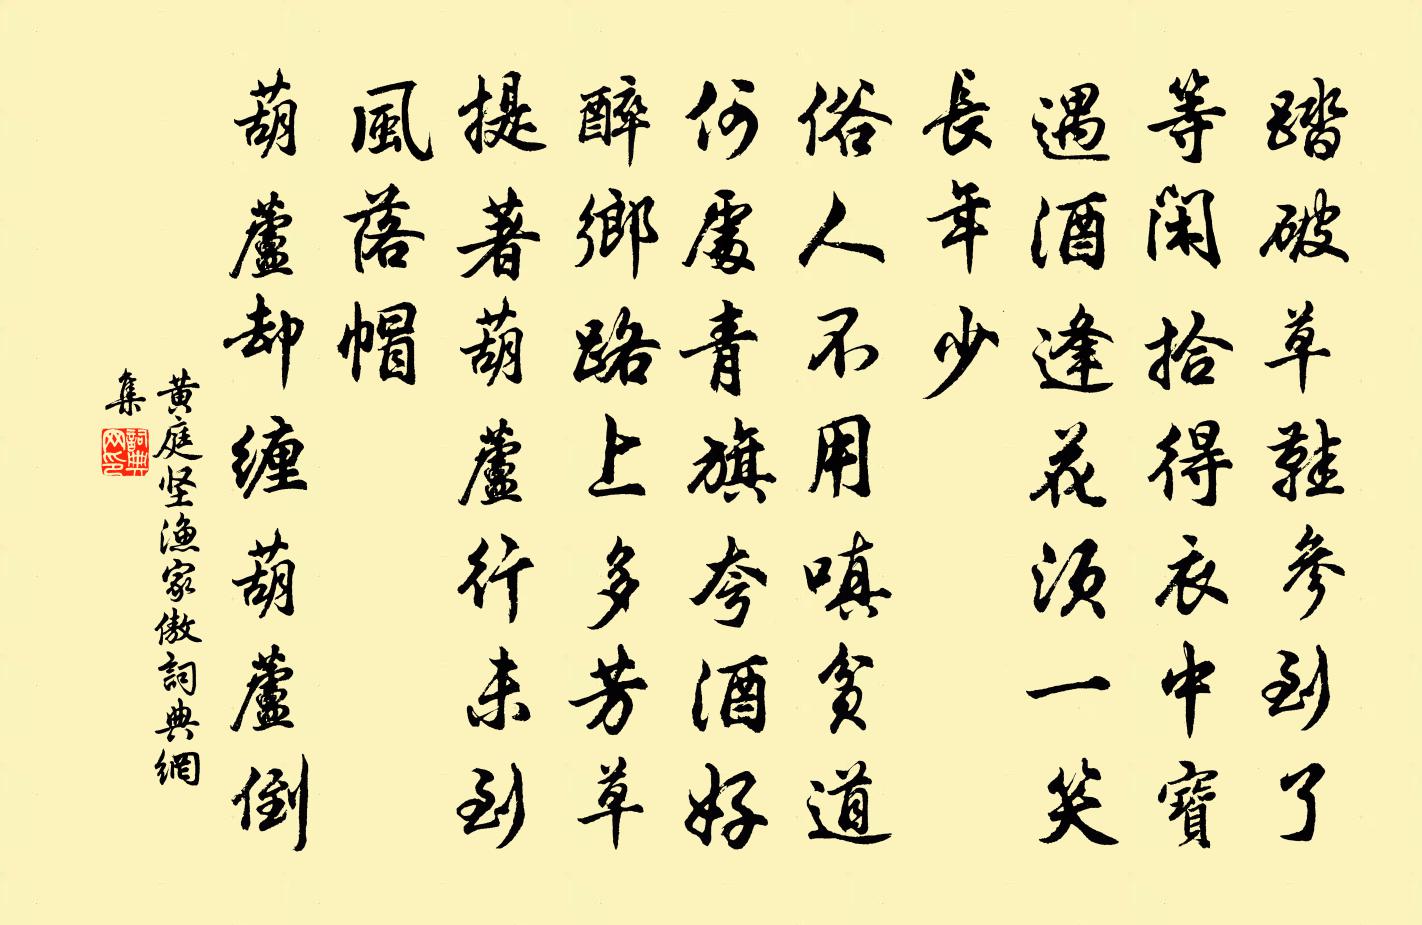 踏破草鞋參到了
等閑拾得衣中寶
遇酒逢花須一笑
長年少
俗人不用嗔貧道
何處青旗夸酒好
醉鄉路上多芳草
提著葫蘆行未到
風落帽
葫蘆却缠葫蘆倒
黄庭坚漁家傲詞典網
集
詞典网印